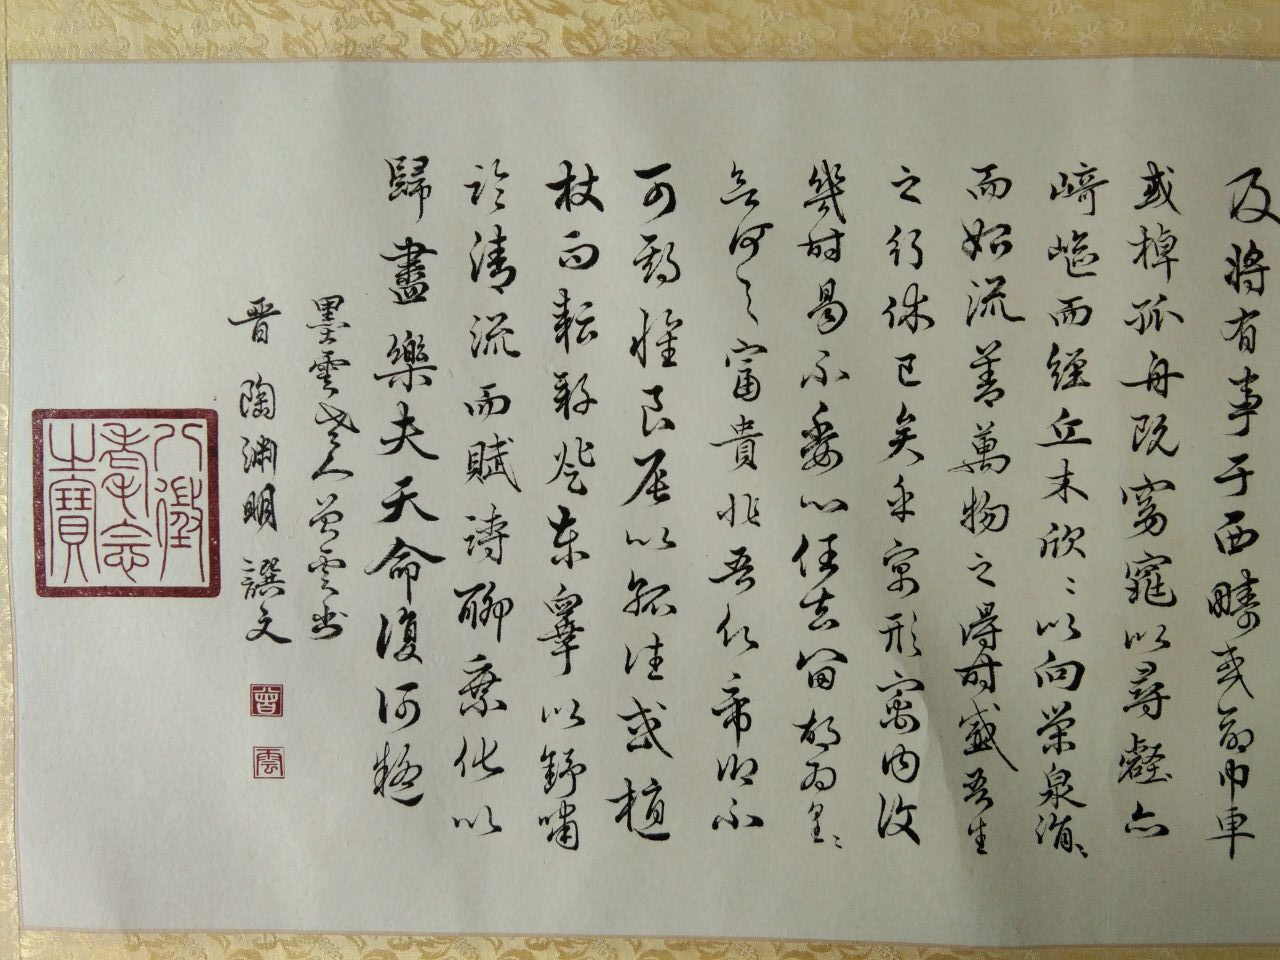 及將有事于西疇或命巾車
或棹孤舟既窈窕以尋壑亦
崎嶇而經丘木欣〻以向榮泉涓〻
而始流善萬物之得時感吾生
之行休已矣乎寓形寓内復
幾時曷不委心任去留胡為遑〻
兮何之富貴非吾願帝鄉不
可期懷良辰以孤往或植
杖而耘耔登東臯以舒嘯
臨清流而賦詩聊乘化以
歸盡樂夫天命復何疑
墨雲老人曾雲書
晉 陶渊明 譔文
曾
雲
八徵耄念之寶